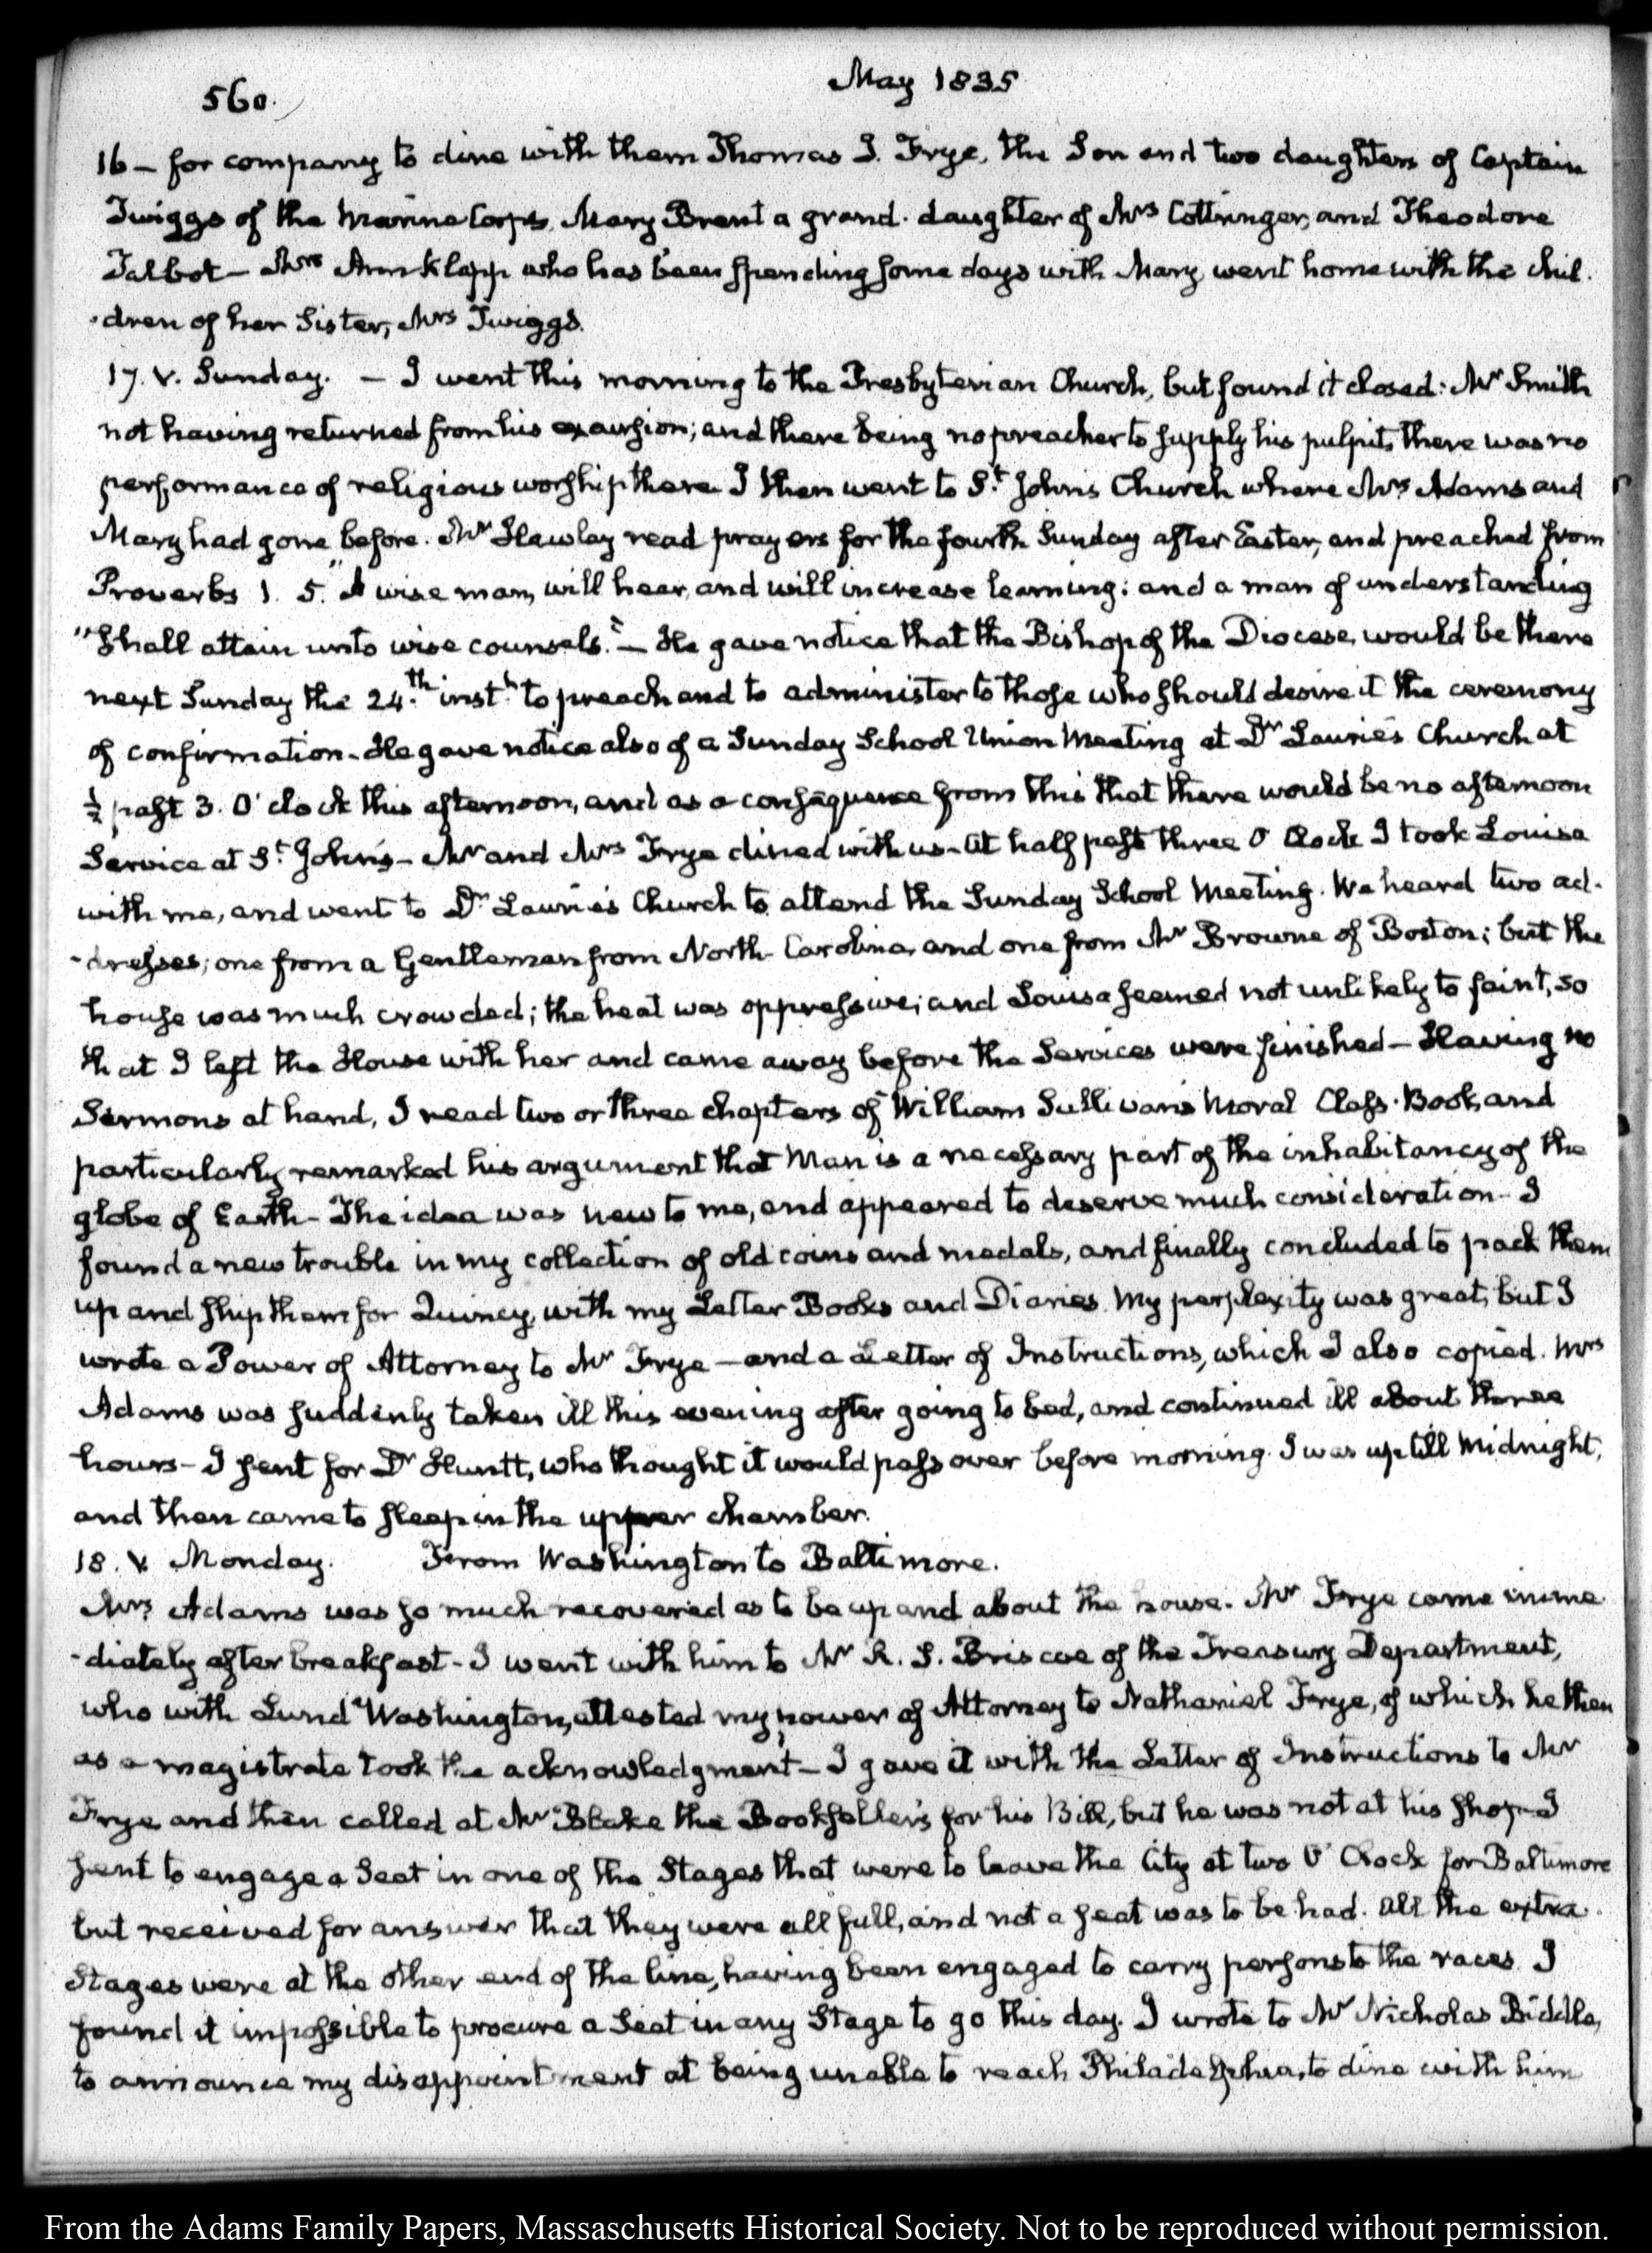 560.
May 1835
16 – for company to dine with them Thomas J. Frye, the Son and two daughters of Captain
Twiggs of the Marine Corps, Mary Brent a grand-daughter of Mrs Cottringer, and Theodore
Talbot – Mrs Ann Klapp who has been spending some days with Mary went home with the chil-
-dren of her Sister, Mrs Twiggs.
17. V. Sunday. – I went this morning to the Presbyterian Church, but found it closed: Mr Smith
not having returned from his excursion; and there being no preacher to supply his pulpit, there was no
performance of religious worship there. I then went to St. Johns Church where Mrs Adams and
Mary had gone before. Mr Hawley read prayers for the fourth Sunday after Easter, and preached from
Proverbs 1. 5. "A wise man, will hear, and will increase learning: and a man of understanding
"Shall attain unto wise counsels." – He gave notice that the Bishop of the Diocese, would be there
next Sunday the 24.th inst.t to preach and to administer to those who should desire it the ceremony
of confirmation – He gave notice also of a Sunday School Union Meeting at Dr Laurie's Church at
½ past 3. O'clock this afternoon, and as a consequence from this that there would be no afternoon
Service at St. John's – Mr and Mrs Frye dined with us – At half past three O'Clock I took Louisa
with me, and went to Dr Laurie's Church to attend the Sunday School Meeting. We heard two ad-
-dresses; one from a Gentleman from North-Carolina, and one from Mr Browne of Boston; but the
house was much crowded; the heat was oppressive; and Louisa seemed not unlikely to faint, so
that I left the House with her and came away before the Services were finished – Having no
Sermons at hand, I read two or three chapters of William Sullivan's Moral Class-Book, and
particularly remarked his argument that Man is a necessary part of the inhabitancy of the
globe of Earth – The idea was new to me, and appeared to deserve much consideration – I
found a new trouble in my collection of old coins and medals, and finally concluded to pack them
up and ship them for Quincy, with my Letter Books and Diaries. My perplexity was great, but I
wrote a Power of Attorney to Mr Frye – and a Letter of Instructions, which I also copied. Mrs
Adams was suddenly taken ill this evening after going to bed, and continued ill about three
hours – I sent for Dr Huntt, who thought it would pass over before morning. I was up till Midnight,
and then came to sleep in the upper chamber.
18. V. Monday. From Washington to Baltimore.
Mrs Adams was so much recovered as to be up and about the house. Mr Frye came imme-
-diately after breakfast – I went with him to Mr R. S. Briscoe of the Treasury Department,
who with Lund Washington, attested my power of Attorney to Nathaniel Frye, of which he then
as a magistrate took the acknowledgment – I gave it with the Letter of Instructions to Mr
Frye and then called at Mr Blake the Bookseller's for his Bill, but he was not at his shop – I
sent to engage a Seat in one of the Stages that were to leave the City at two O'Clock for Baltimore
but received for answer that they were all full, and not a seat was to be had. All the extra
Stages were at the other end of the line, having been engaged to carry persons to the races. I
found it impossible to procure a Seat in any Stage to go this day. I wrote to Mr Nicholas Biddle,
to announce my disappointment at being unable to reach Philadelphia, to dine with him
From the Adams Family Papers, Massaschusetts Historical Society. Not to be reproduced without permission.